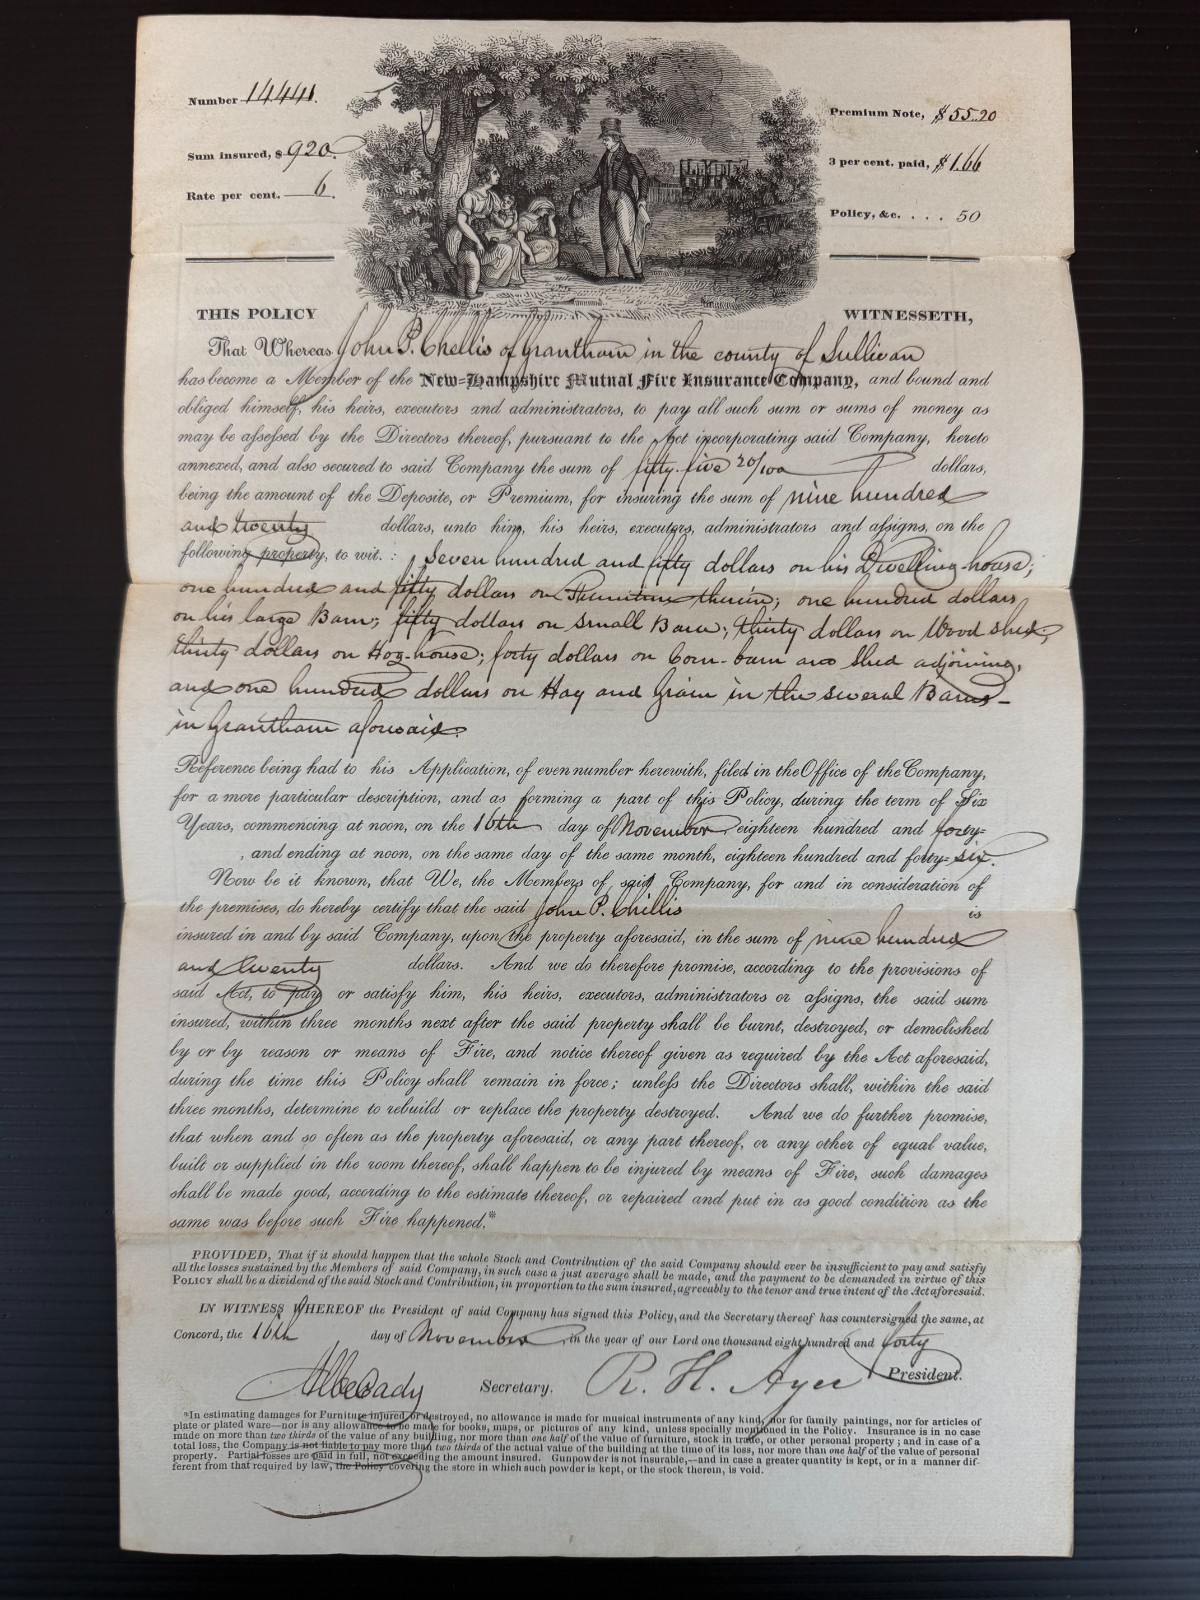 Number 14441.
Sum insured, $ 920.
Rate per cent. 6.
Premium Note, $ 55.20
3 per cent. paid, $ 1.66
Policy, &c. . . . 50
THIS POLICY WITNESSETH,
That Whereas John P. Chellis of Grantham in the county of Sullivan
has become a Member of the New-Hampshire Mutual Fire Insurance Company, and bound and
obliged himself, his heirs, executors and administrators, to pay all such sum or sums of money as
may be assessed by the Directors thereof, pursuant to the Act incorporating said Company, hereto
annexed, and also secured to said Company the sum of fifty-five 20/100 dollars,
being the amount of the Deposite, or Premium, for insuring the sum of nine hundred
and twenty dollars, unto him, his heirs, executors, administrators and assigns, on the
following property, to wit. : Seven hundred and fifty dollars on his Dwelling-house;
one hundred and fifty dollars on Furniture therein; one hundred dollars
on his large Barn; fifty dollars on small Barn; thirty dollars on Wood shed,
thirty dollars on Hog-house; forty dollars on Corn-barn and Shed adjoining,
and one hundred dollars on Hay and Grain in the several Barns-
in Grantham aforesaid.
Reference being had to his Application, of even number herewith, filed in the Office of the Company,
for a more particular description, and as forming a part of this Policy, during the term of Six
Years, commencing at noon, on the 16th day of November eighteen hundred and forty=
, and ending at noon, on the same day of the same month, eighteen hundred and forty=six.
Now be it known, that We, the Members of said Company, for and in consideration of
the premises, do hereby certify that the said John P. Chellis is
insured in and by said Company, upon the property aforesaid, in the sum of nine hundred
and twenty dollars. And we do therefore promise, according to the provisions of
said Act, to pay or satisfy him, his heirs, executors, administrators or assigns, the said sum
insured, within three months next after the said property shall be burnt, destroyed, or demolished
by or by reason or means of Fire, and notice thereof given as required by the Act aforesaid,
during the time this Policy shall remain in force; unless the Directors shall, within the said
three months, determine to rebuild or replace the property destroyed. And we do further promise,
that when and so often as the property aforesaid, or any part thereof, or any other of equal value,
built or supplied in the room thereof, shall happen to be injured by means of Fire, such damages
shall be made good, according to the estimate thereof, or repaired and put in as good condition as the
same was before such Fire happened.*
PROVIDED, That if it should happen that the whole Stock and Contribution of the said Company should ever be insufficient to pay and satisfy
all the losses sustained by the Members of said Company, in such case a just average shall be made, and the payment to be demanded in virtue of this
POLICY shall be a dividend of the said Stock and Contribution, in proportion to the sum insured, agreeably to the tenor and true intent of the Act aforesaid.
IN WITNESS WHEREOF the President of said Company has signed this Policy, and the Secretary thereof has countersigned the same, at
Concord, the 16th day of November in the year of our Lord one thousand eight hundred and forty
Secretary. R. H. Ayer President.
*In estimating damages for Furniture injured or destroyed, no allowance is made for musical instruments of any kind, nor for family paintings, nor for articles of
plate or plated ware—nor is any allowance to be made for books, maps, or pictures of any kind, unless specially mentioned in the Policy. Insurance is in no case
made on more than two thirds of the value of any building, nor more than one half of the value of furniture, stock in trade, or other personal property; and in case of a
total loss, the Company is not liable to pay more than two thirds of the actual value of the building at the time of its loss, nor more than one half of the value of personal
property. Partial losses are paid in full, not exceeding the amount insured. Gunpowder is not insurable,—and in case a greater quantity is kept, or in a manner dif-
ferent from that required by law, the Policy covering the store in which such powder is kept, or the stock therein, is void.